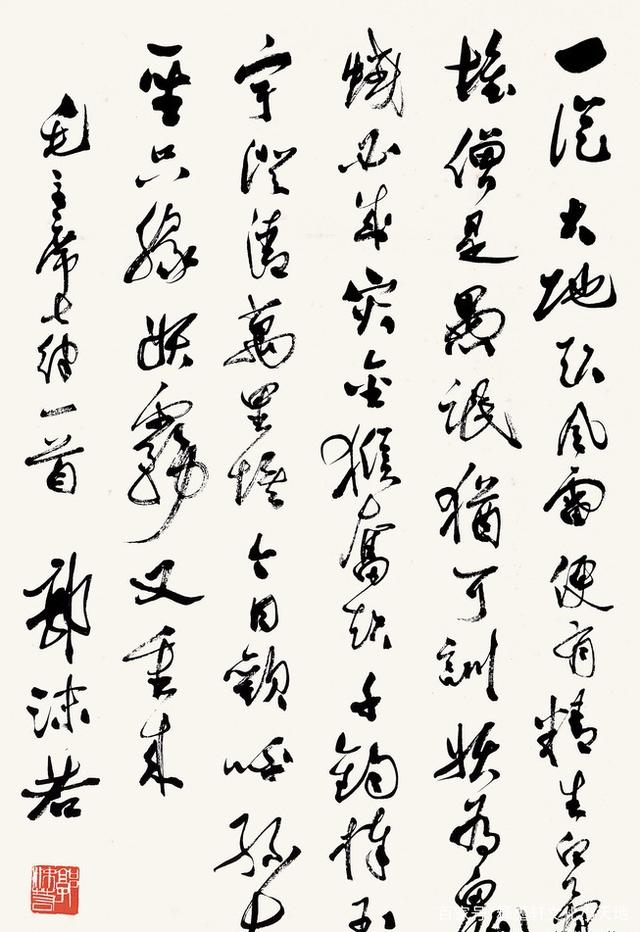 一從大地起風雷便有精生白骨
堆僧是愚氓猶可訓妖為鬼
蜮必成灾金猴奮起千鈞棒玉
宇澄清萬里埃今日歡呼孫大
聖只緣妖霧又重来
毛主席七律一首 郭沫若
郭沫若
百家号